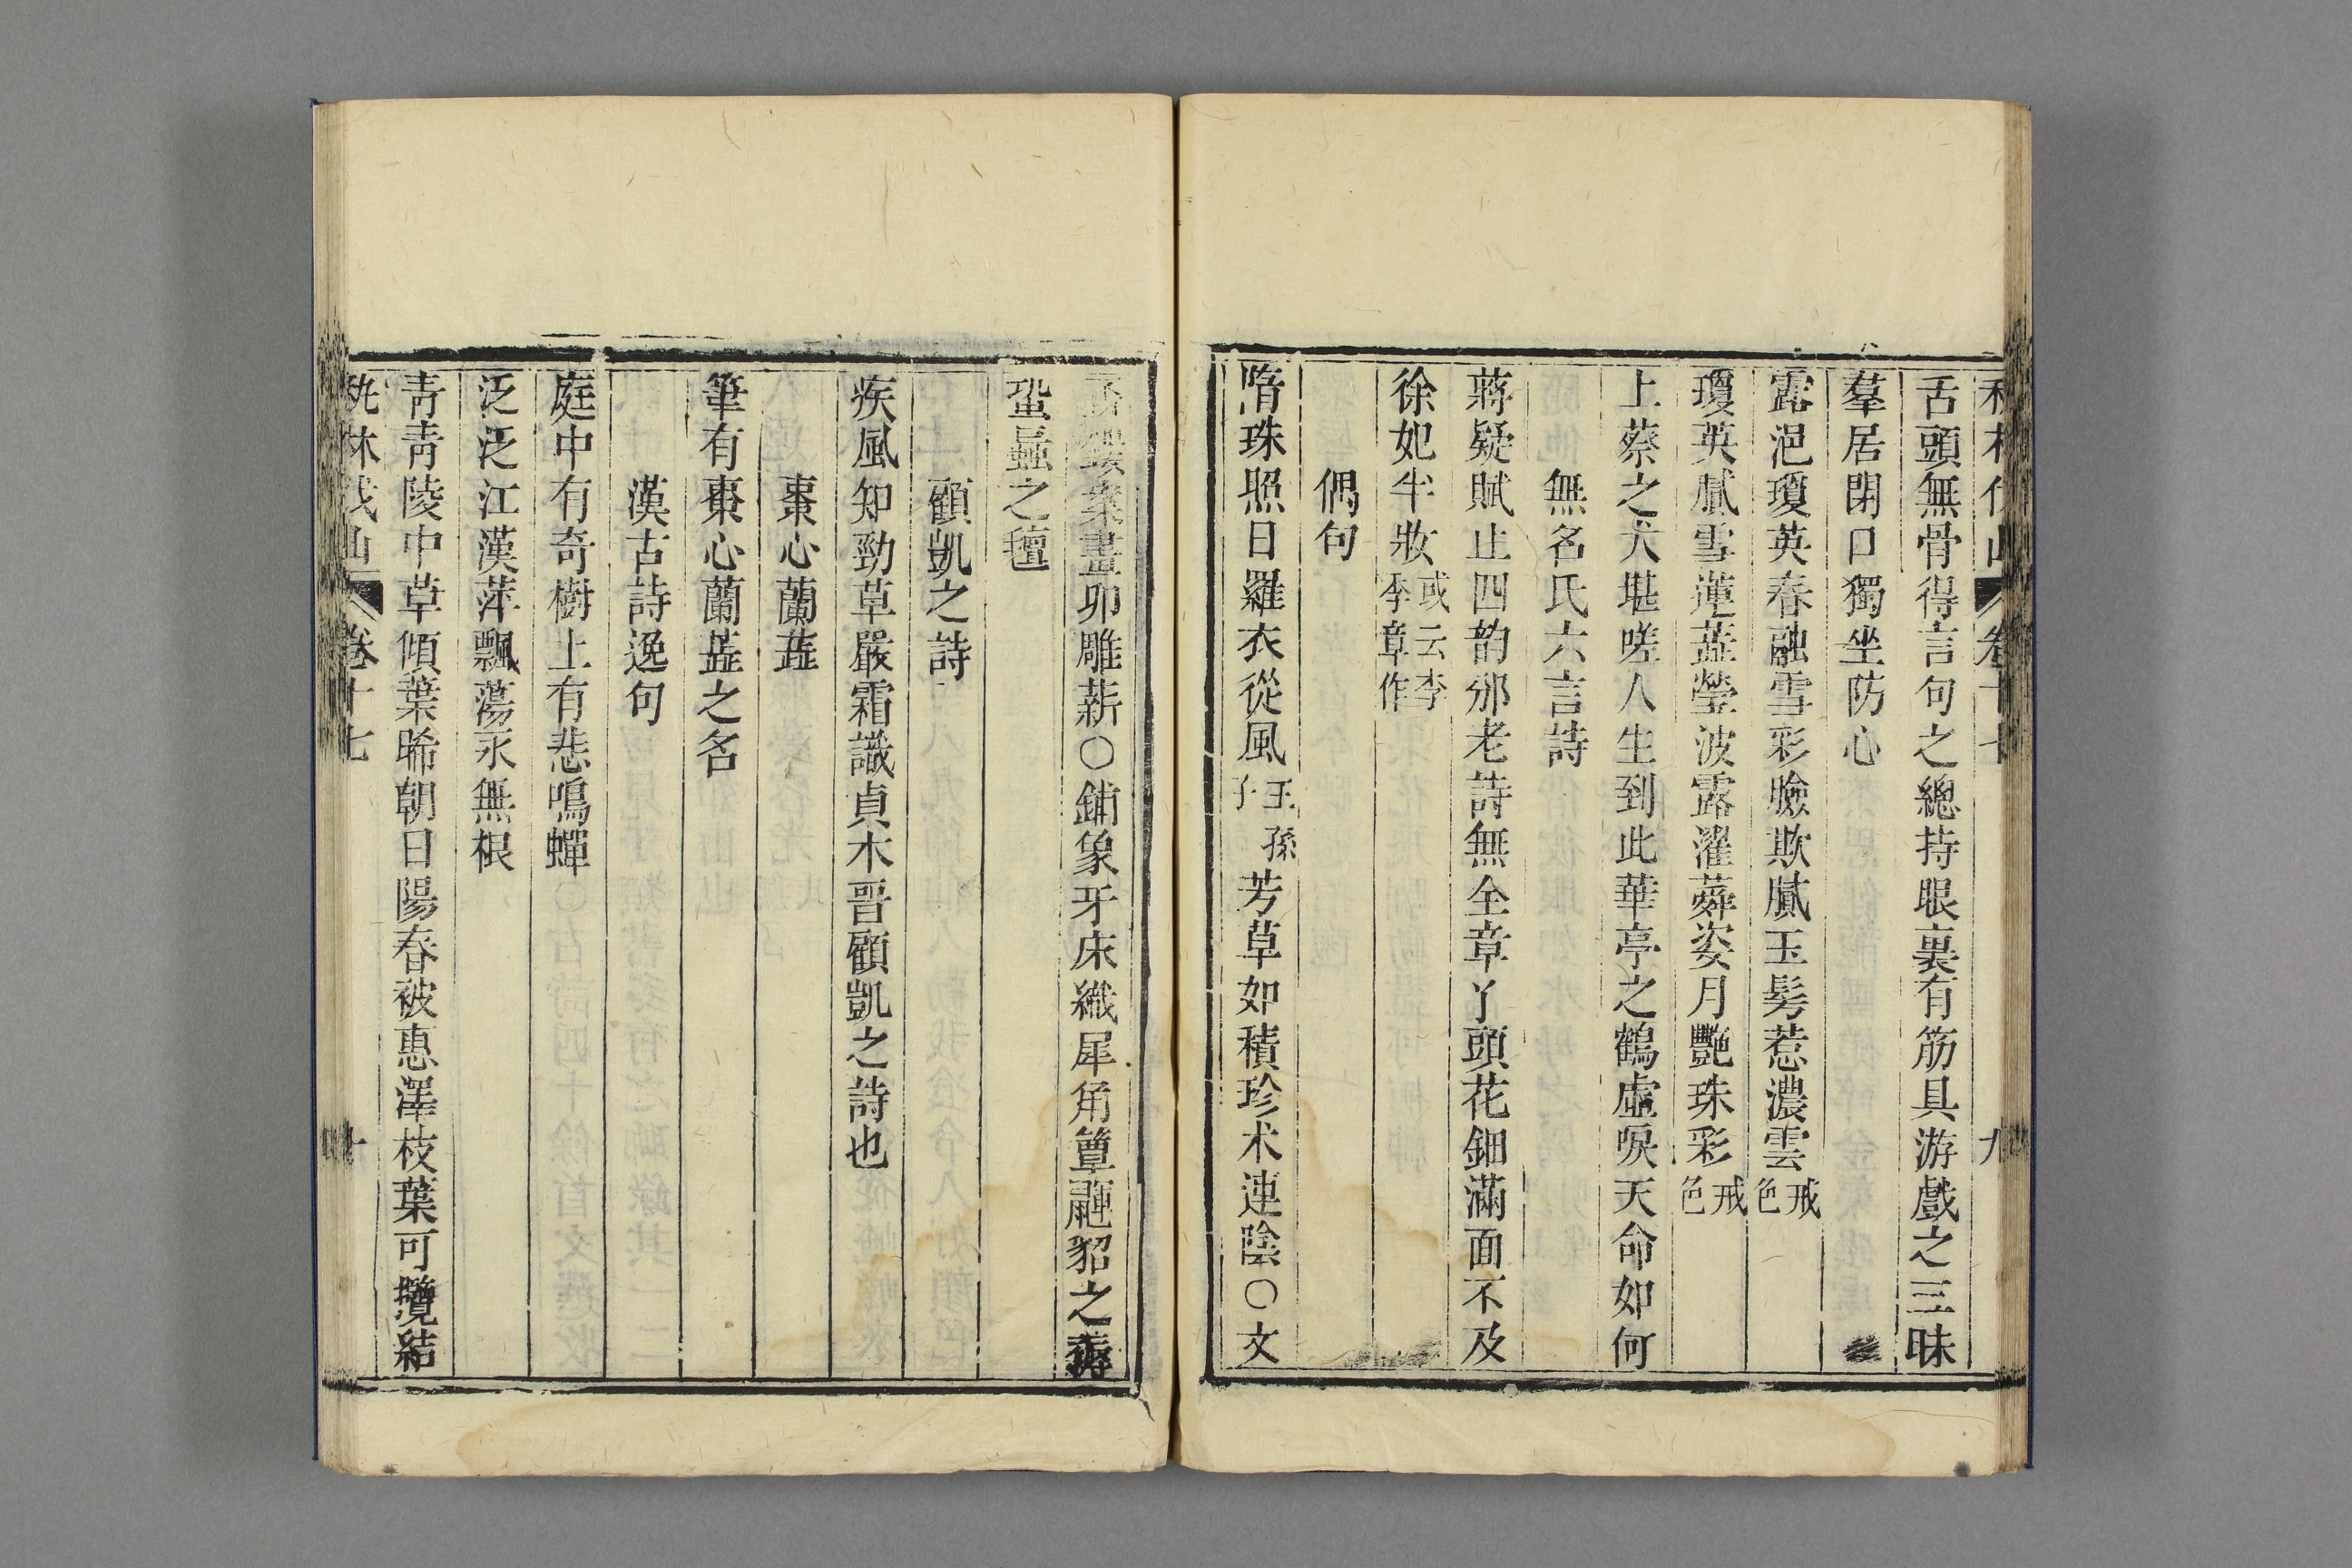 卷十七 九
舌頭無骨得言句之總持眼裏有筋具游戲之三昧
羣居閉口獨坐防心
露浥瓊英春融雪彩臉欺膩玉髩惹濃雲戒色
瓊英膩雪蓮蕋瑩波露濯蕣姿月艷珠彩戒色
上蔡之犬堪嗟人生到此華亭之鶴虛唳天命如何
無名氏六言詩
蔣疑賦止四韵邠老詩無全章丫頭花鈿滿面不及
徐妃半妝或云李季章作
偶句
隋珠照日羅衣從風王孫芳草如積珍木連陰〇文
案畫卯雕薪〇鋪象牙床織犀角簟𪖂貂之褥
蛩蝱之氊
顧凱之詩
疾風知勁草嚴霜識貞木晋顧凱之詩也
棗心蘭蕋
筆有棗心蘭蕋之名
漢古詩逸句
庭中有奇樹上有悲鳴蟬
泛泛江漢萍飄蕩永無根
青青陵中草傾葉晞朝日陽春被惠澤枝葉可攬結
秇林伐山 卷十七 十